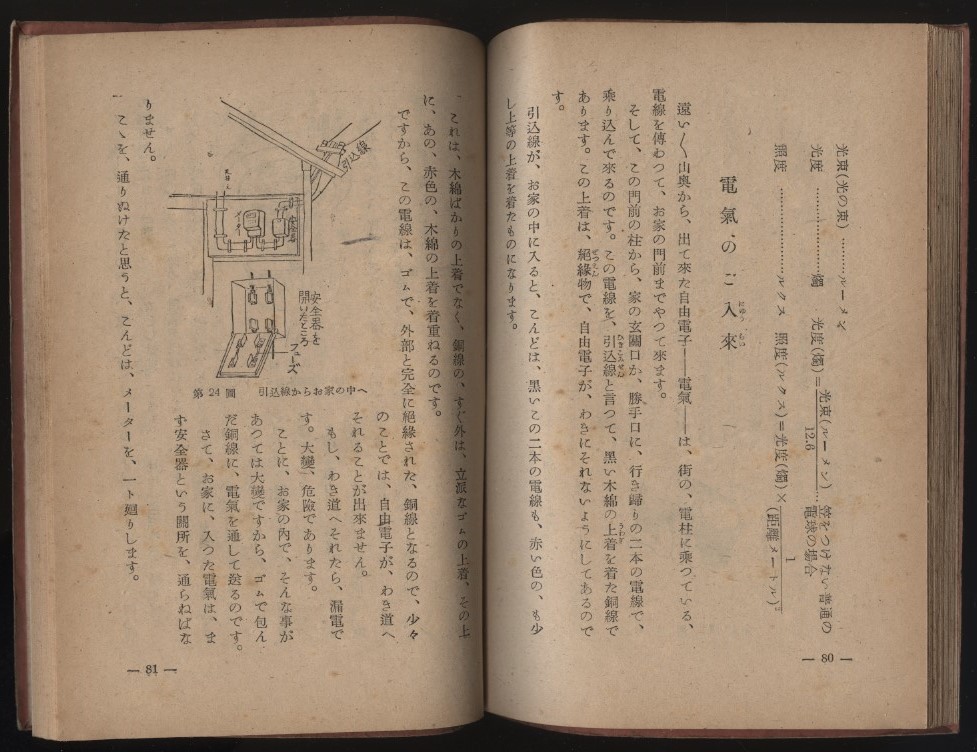 光束(光の束)…………ルーメン
光度 ………………燭 光度(燭)=光束(ルーメン)/12.6…笠をつけない普通の電球の場合
照度 ………………ルクス 照度(ルクス)=光度(燭)×1/(距離メートル)²
電氣のご入來
にゅう らい
遠い〱山奥から、出て來た自由電子——電氣——は、街の、電柱に乘つている、
電線を傳わつて、お家の門前までやつて來ます。
そして、この門前の柱から、家の玄關口か、勝手口に、行き歸りの二本の電線で、
乘り込んで來るのです。この電線を、引込線と言つて、黒い木綿の上着を着た銅線で
ひきこみせん
うわぎ
あります。この上着は、絕緣物で、自由電子が、わきにそれないようにしてあるので
ぜつえん
す。
引込線が、お家の中に入ると、こんどは、黒いこの二本の電線も、赤い色の、も少
し上等の上着を着たものになります。
— 80 —
これは、木綿ばかりの上着でなく、銅線の、すぐ外は、立派なゴムの上着、その上
に、あの、赤色の、木綿の上着を着重ねるのです。
ですから、この電線は、ゴムで、外部と完全に絕緣された、銅線となるので、少々
のことでは、自由電子が、わき道へ
それることが出來ません。
もし、わき道へそれたら、漏電で
す。大變、危險であります。
ことに、お家の內で、そんな事が
あつては大變ですから、ゴムで包ん
だ銅線に、電氣を通して送るのです。
さて、お家に、入つた電氣は、ま
ず安全器という關所を、通らねばな
引込線
安全器
メーター
安全器を
開いたところ
フューズ
第24圖 引込線からお家の中へ
りません。
こゝを、通りぬけたと思うと、こんどは、メーターを、一ト廻りします。
— 81 —